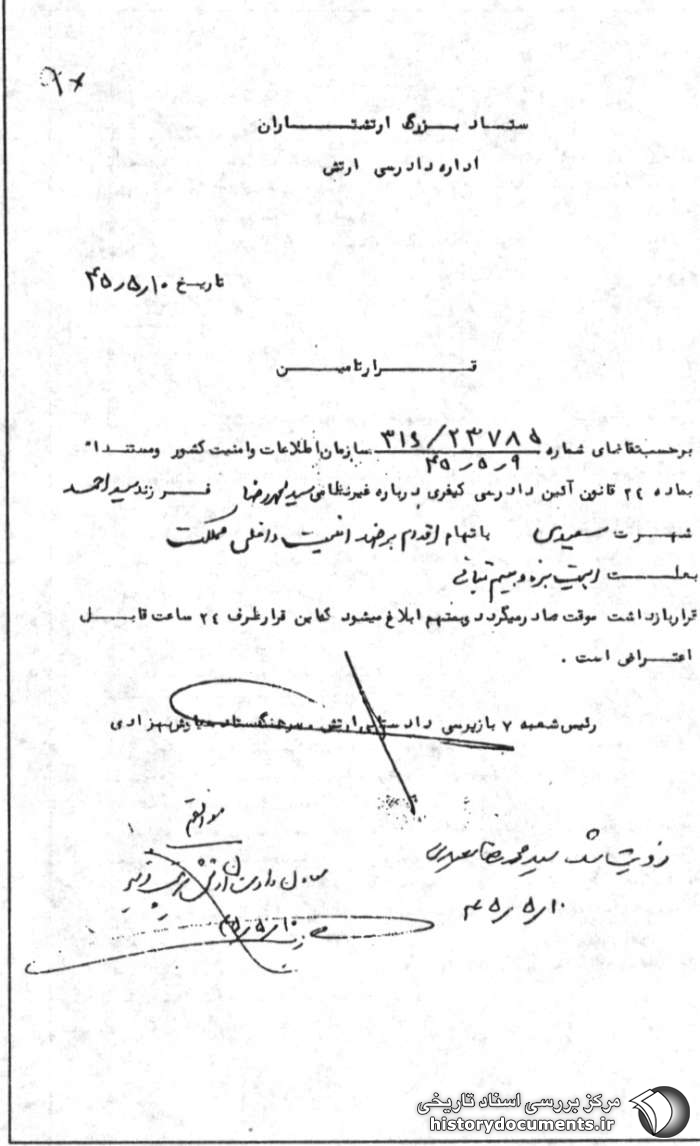 ستاد بزرگ ارتشتاران
اداره دادرسی ارتش
تاریخ ۴۵/۵/۱۰
قرار تامین
برحسب تقاضای شماره ۳۱۶/۲۳۷۸۵ سازمان اطلاعات و امنیت کشور و مستندا"
۴۵/۵/۹
بماده ۲۴ قانون آئین دادرسی کیفری درباره غیرنظامی سید محمدرضا فرزند سید احمد
شهرت سعیدی باتهام اقدام برضد امنیت داخلی مملکت
بعلت اهمیت بزه و بیم تبانی
قرار بازداشت موقت صادر میگردد و بمتهم ابلاغ میشود که این قرار ظرف ۲۴ ساعت قابل
اعتراض است .
رئیس شعبه ۷ بازپرسی دادستانی ارتش - سرهنگ ستاد بهزادی
موافقم
رؤیت شد سید محمدرضا سعیدی
۴۵/۵/۱۰
۴۵/۵/۱۰
مرکز بررسی اسناد تاریخی
historydocuments.ir